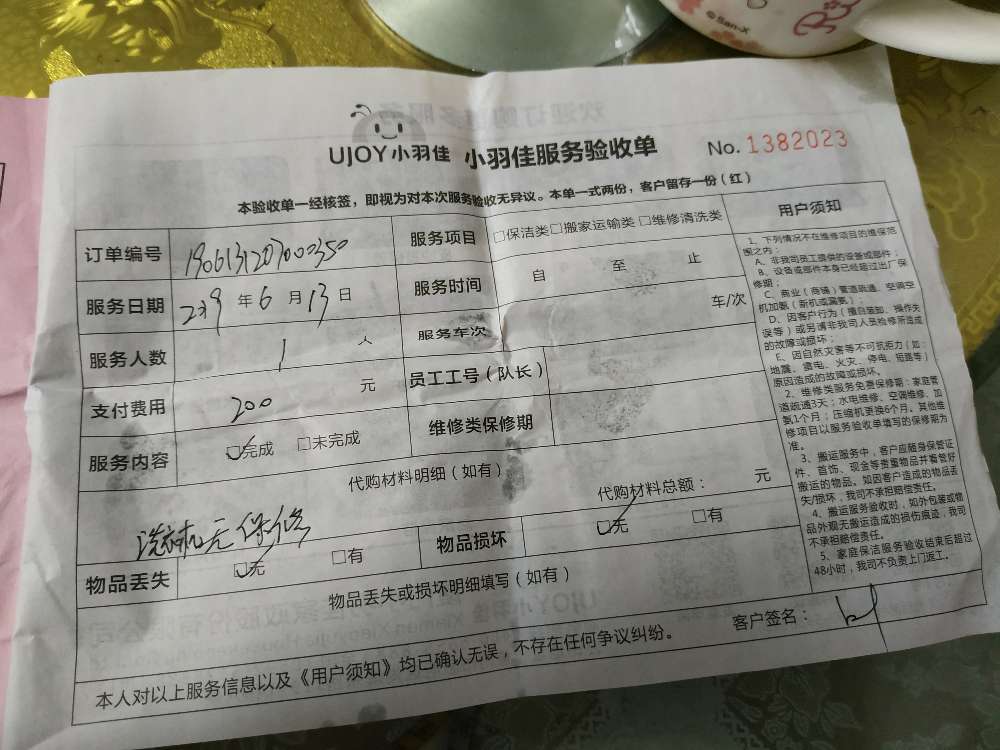 ©San-X
UJOY小羽佳 小羽佳服务验收单 No. 1382023
本验收单一经核签，即视为对本次服务验收无异议。本单一式两份，客户留存一份（红）
订单编号 1906131207000350 服务项目 □保洁类□搬家运输类 □维修清洗类
服务日期 2019 年 6 月 13 日 服务时间 自 至 止
服务人数 1 人 服务车次 车/次
支付费用 200 元 员工工号（队长）
服务内容 ☑完成 □未完成 维修类保修期
代购材料明细（如有）
洗衣机无保修 代购材料总额： 元
物品丢失 ☑无 □有 物品损坏 ☑无 □有
物品丢失或损坏明细填写（如有）
本人对以上服务信息以及《用户须知》均已确认无误，不存在任何争议纠纷。 客户签名：
用户须知
1、下列情况不在维修项目的维保范
围之内：
A、非我司员工提供的设备或部件；
B、设备或部件本身已经超过出厂保
修期；
C、商业（商场）管道疏通、空调空
机加氨（新机或漏氨）；
D、因客户行为（擅自装卸、操作失
误等）或另请非我司人员检修所造成
的故障或损坏；
E、因自然灾害等不可抗拒力（如：
地震、雷电、火灾、停电、短路等）
原因造成的故障或损坏。
2、维修类服务免费保修期：家庭管
道疏通3天；水电维修、空调维修、加
氨1个月；压缩机更换6个月，其他维
修项目以服务验收单填写的保修期为
准。
3、搬运服务中，客户应随身保管证
件、首饰、现金等贵重物品并看管好
搬运的物品。如因客户造成的物品丢
失/损坏，我司不承担赔偿责任。
4、搬运服务验收时，如外包装或物
品外观无搬运造成的损伤痕迹，我司
不承担赔偿责任。
5、家庭保洁服务验收结束后超过
48小时，我司不负责上门返工。